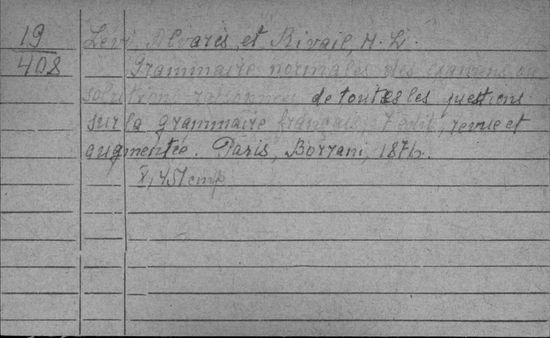 19 Levi Alvarès, et Rivail, H. L.
408 Grammaire normales des examens, ou
solutions de toutes les questions
sur la grammaire française, 7 édit., revue et
augmentée. Paris, Borrani, 187
X, 451 стр